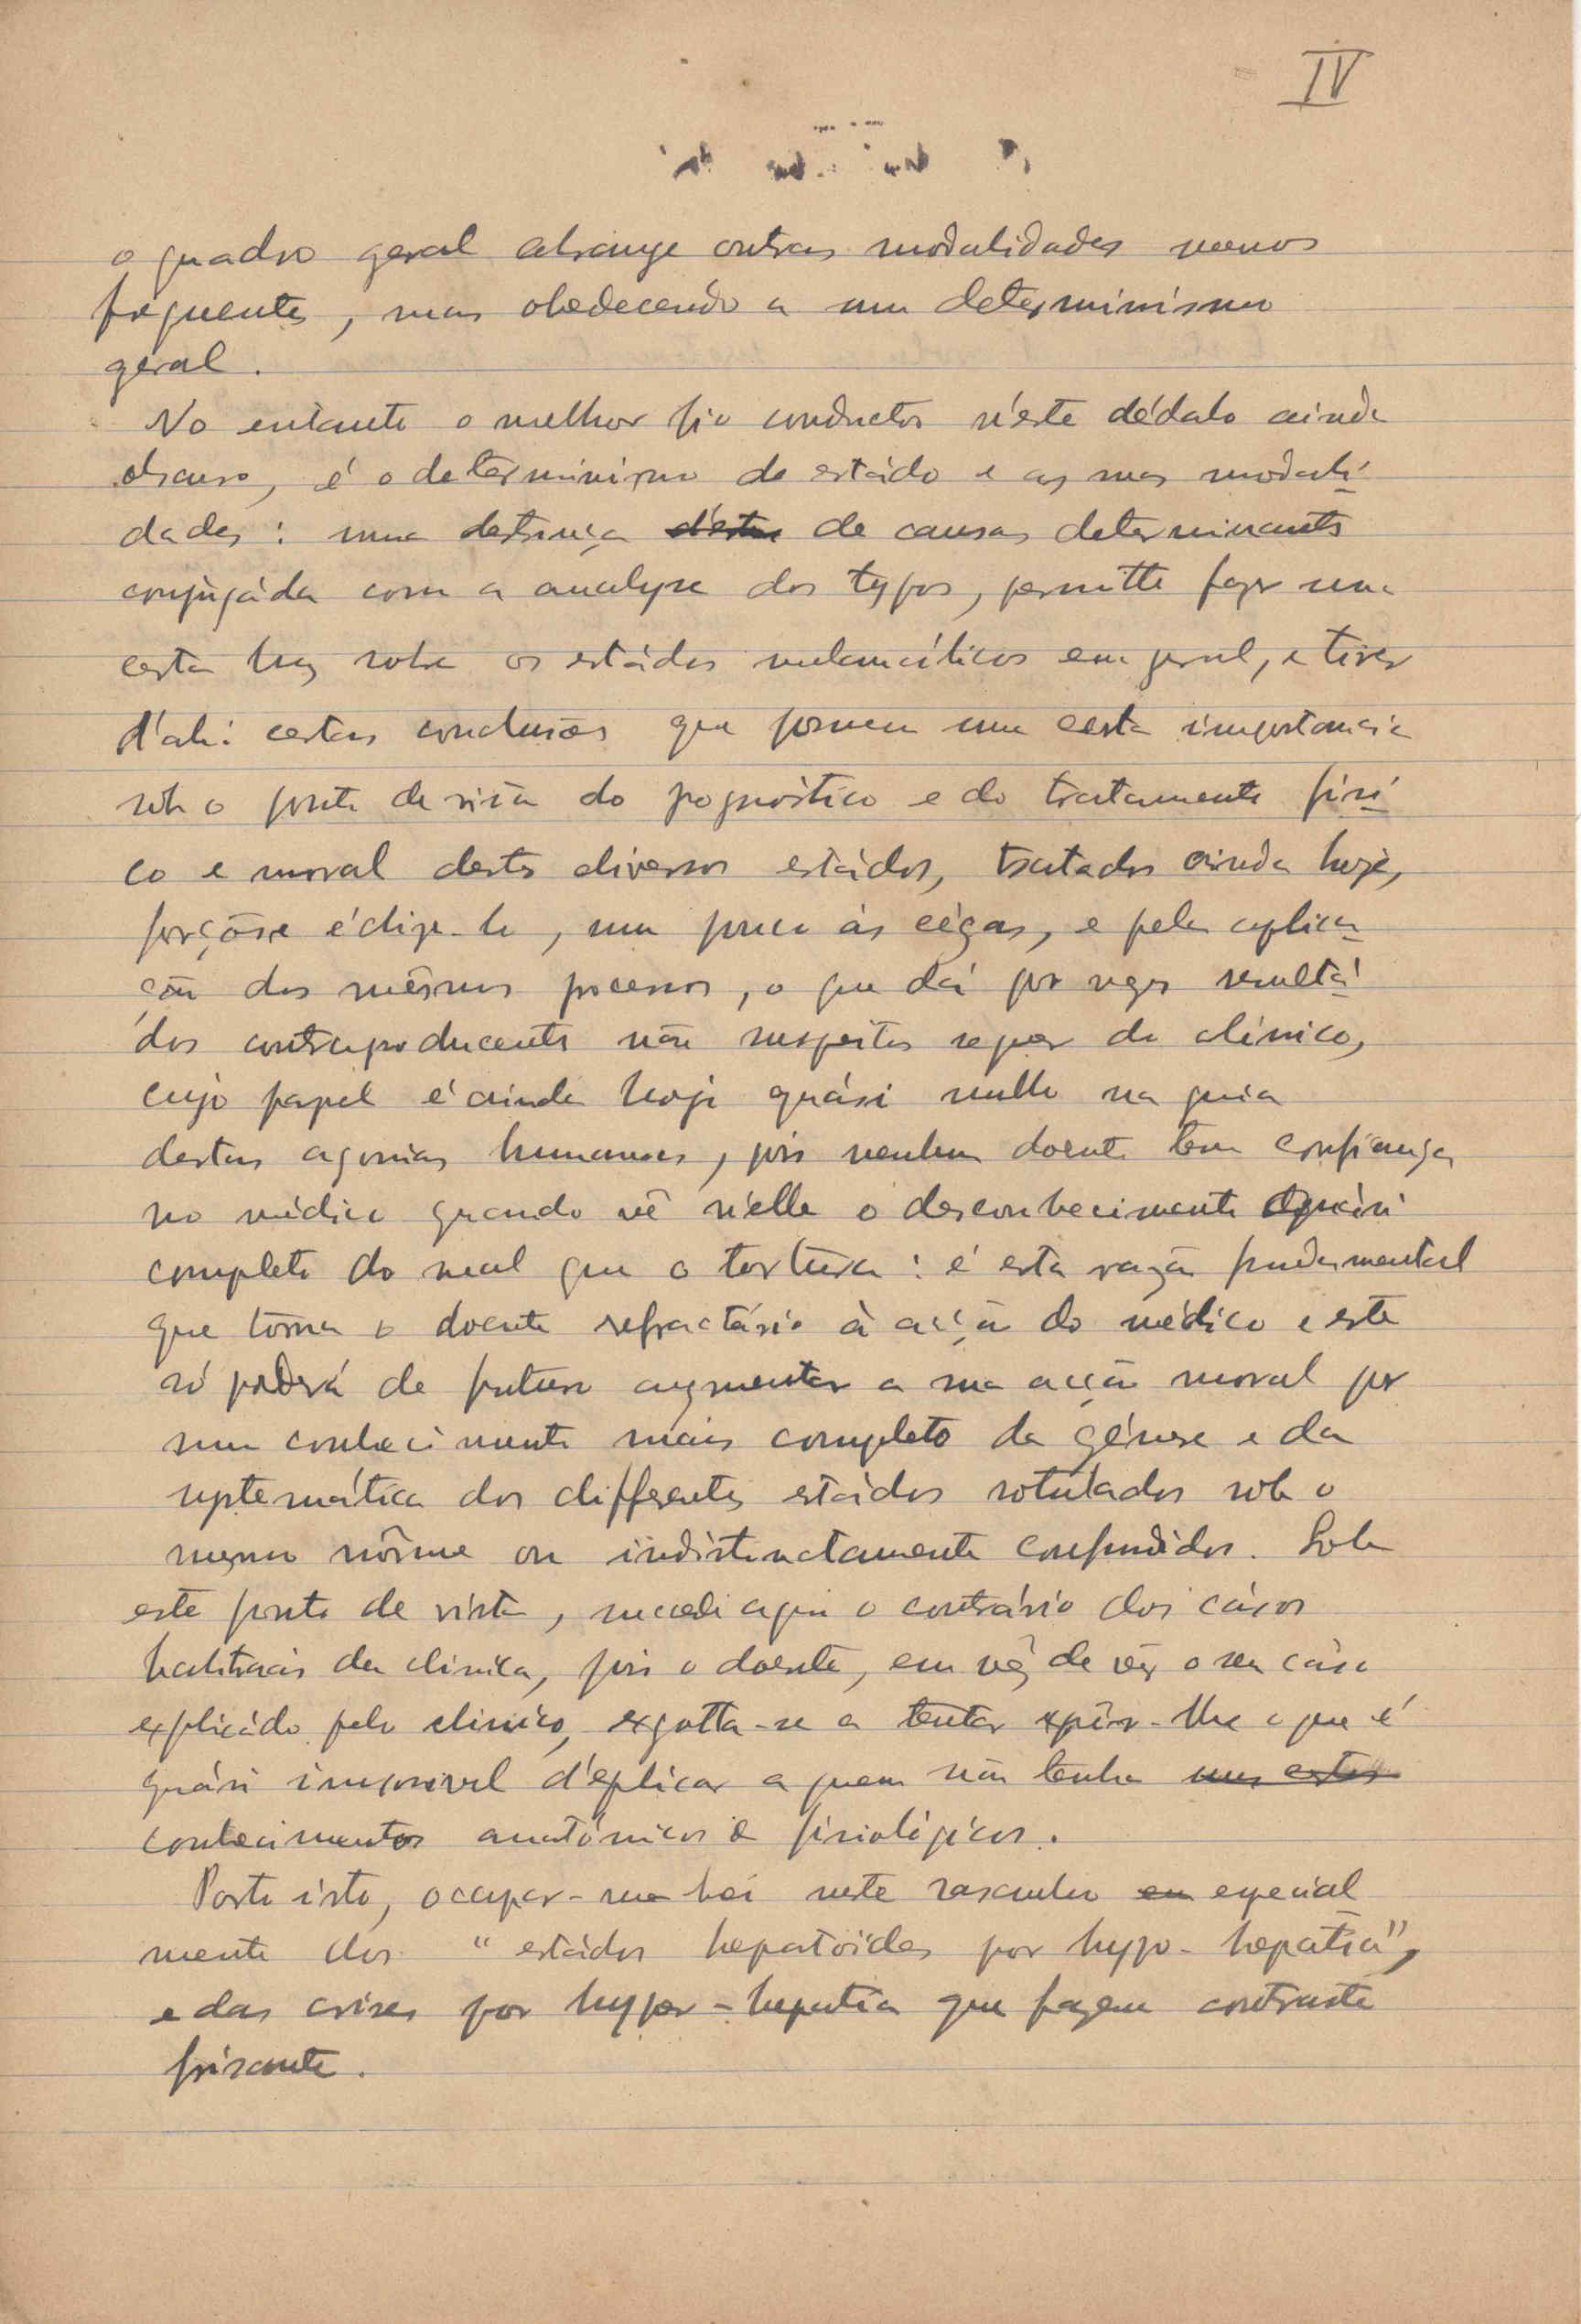 IV
o quadro geral abrange outras modalidades menos
frequentes, mas obedecendo a um determinismo
geral.
No entanto o melhor fio conductor n'este dédalo ainda
obscuro, é o determinismo do estádo e as suas modali-
dades: uma destrinça d'estas de causas determinantes
conjugáda com a analyse dos typos, permitte fazer uma
certa luz sobre os estádos melancólicos em geral, e tirar
d'ahi certas conclusões que formem uma certa importancia
sob o ponto de vista do prognóstico e do tratamento físi-
co e moral destes diversos estádos, tratados ainda hoje,
forçôso é dize-lo, um pouco ás cégas, e pela aplica-
ção dos mêsmos processos, o que dá por vezes resultá-
dos contraproducentes não suspeitos sequer do clínico,
cujo papel é ainda hoje quási nullo na guia
destas agonias humanas, pois nenhum doente tem confiança
no médico quando vê n'elle o desconhecimento quási
completo do mal que o tortura: é esta razão fundamental
que tórna o doente refractário à acção do médico e este
só poderá de futuro augmentar a sua acção moral por
um conhecimento mais completo da génese e da
systemática dos differentes estádos rotulados sob o
mesmo nôme ou indistinctamente confundidos. Sob
este ponto de vista, succede aqui o contrário dos cásos
habituais da clinica, pois o doente, em vêz de vêr o seu cáso
explicádo pelo clinico, exgotta-se a tentar expôr-lhe o que é
quási impossivel d'explicar a quem não tenha
conhecimentos anatómicos e fisiológicos.
Posto isto, occupar-me hei neste rascunho em especial
mente dos "estádos hepatoïdes por hypo-hepatia",
e das crises por hyper-hepatia que fazem contraste
frisante.